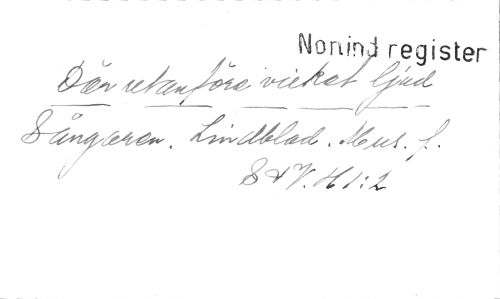 Nonind register
Där utanföre vicket ljud
Sångaren. Lindblad. Mus. f.
S & V. H 1:2